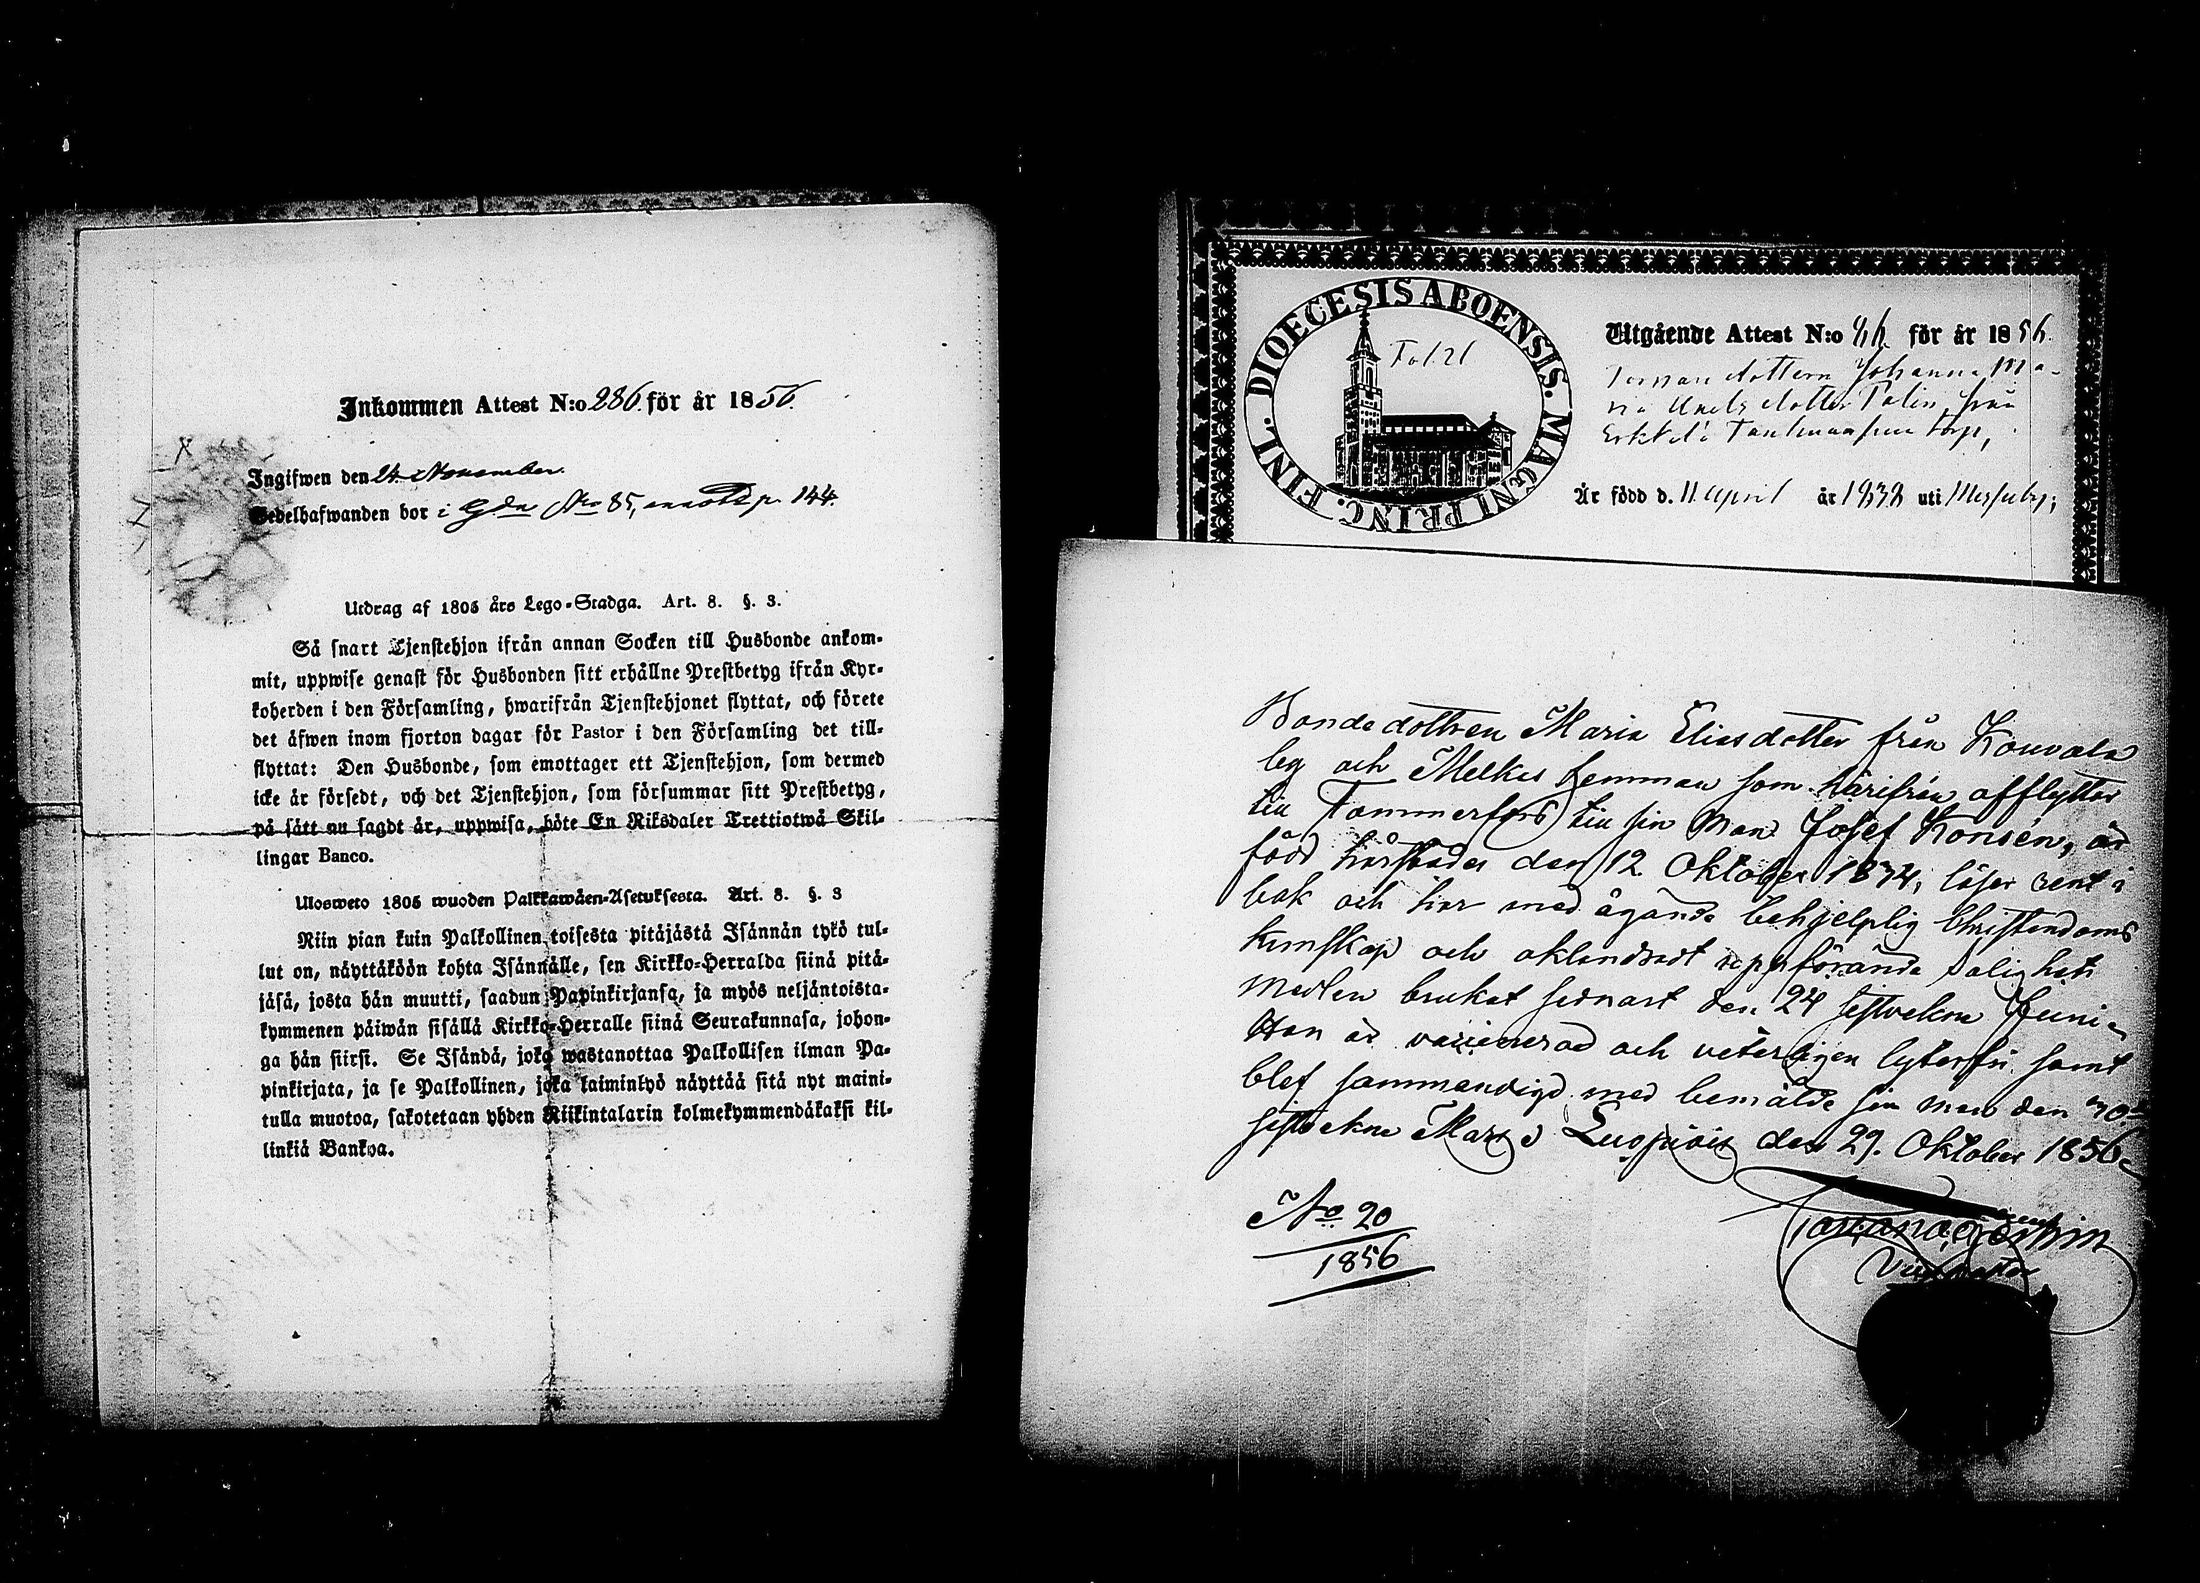 Inkommen Attest N:o 286. för år 1856.
Ingifwen den 24 November.
Sedelhafwanden bor i Gda No 85, annoterd p. 144.
Utdrag af 1805 års Lego-Stadga. Art. 8. §. 3.
Så snart Tjenstehjon ifrån annan Socken till Husbonde ankom-
mit, uppwise genast för Husbonden sitt erhållne Prestbetyg ifrån Kyr-
koherden i den Församling, hwarifrån Tjenstehjonet flyttat, och förete
det äfwen inom fjorton dagar för Pastor i den Församling det till-
flyttat: Den Husbonde, som emottager ett Tjenstehjon, som dermed
icke är försedt, och det Tjenstehjon, som försummar sitt Prestbetyg,
på sätt nu sagdt är, uppwisa, böte En Riksdaler Trettiotwå Skil-
lingar Banco.
Ulosweto 1805 wuoden Palkkawäen-Asetuksesta. Art. 8. §. 3
Niin pian kuin Palkollinen toisesta pitäjästä Isännän tykö tul-
lut on, näyttäköön kohta Isännälle, sen Kirkko-Herralda siinä pitä-
jäsä, josta hän muutti, saadun Papinkirjansa, ja myös neljäntoista-
kymmenen päiwän sisällä Kirkko-Herralle siinä Seurakunnasa, johon-
ga hän siirsi. Se Isändä, joka wastanottaa Palkollisen ilman Pa-
pinkirjata, ja se Palkollinen, joka laiminlyö näyttää sitä nyt maini-
tulla muotoa, sakotetaan yhden Riikintalarin kolmekymmendäkaksi kil-
linkiä Bankoa.
DIOECESIS ABOENSIS. MAGNI PRINC. FINL.
Fol. 21
Utgående Attest N:o 46 för år 1856.
dottern Johanna Ma-
ria dotter Palin, från
torp,
Är född d. 11 April år 1832 uti Messuby;
Bondedottren Maria Eliasdotter från Kouvala
by och Melkis hemman som härifrån afflyttar
till Tammerfors till sin man Josef Konsén, är
född härstädes den 12 Oktober 1834, läser rent i
bok och har med ägande behjelplig Christendoms
kunskap och oklandradt uppförande Salighets
medlen brukat sednast den 24 sistvekne Juni.
Hon är vaccinerad och veterligen lytesfri samt
blef sammanvigd med bemälde sin man den 30
sistvekne Mars. Luopiois den 29. Oktober 1856.
No 20
1856